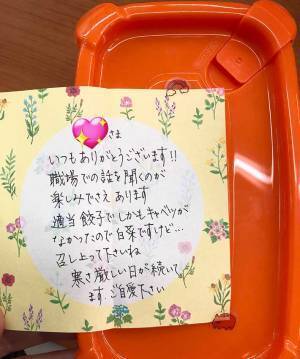 さま
いつもありがとうございます!!
職場での話を聞くのが
楽しみでさえあります
適当餃子でしかもキャベツが
なかったので白菜ですけど…
召し上って下さいね
寒さ厳しい日が続いて
ます。ご自愛下さい